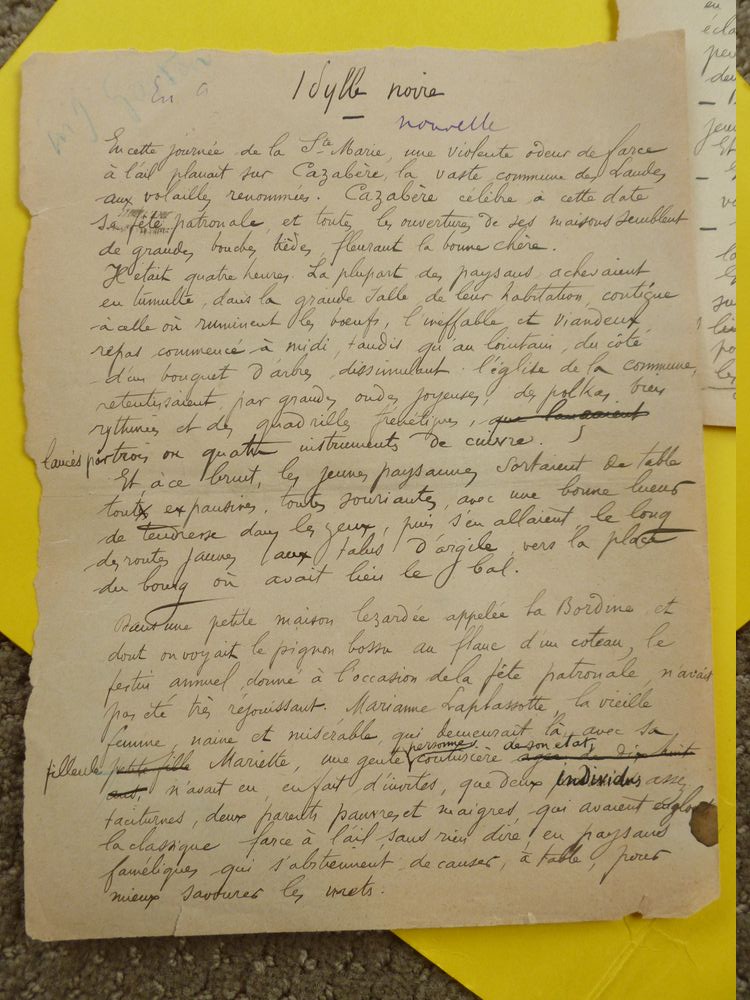 En a
Idylle noire
nouvelle
En cette journée de la Ste Marie, une violente odeur de farce
à l'ail planait sur Cazabère, la vaste commune des Landes
aux volailles renommées. Cazabère célèbre à cette date
sa fête patronale, et toutes les ouvertures de ses maisons semblent
de grandes bouches tièdes, fleurant la bonne chère.
Il était quatre heures. La plupart des paysans achevaient
en tumulte, dans la grande salle de leur habitation, contigüe
à celle où ruminent les boeufs, l'ineffable et viandeux
repas commencé à midi, tandis qu'au lointain, du côté
d'un bouquet d'arbres, dissimulant l'église de la commune,
retentissaient, par grandes ondes joyeuses, des polkas bien
rythmées et des quadrilles frénétiques, que lançaient
lancés par trois ou quatre instruments de cuivre.
Et à ce bruit, les jeunes paysannes sortaient de table
toutes expansives, toutes souriantes, avec une bonne lueur
de tendresse dans les yeux, puis s'en allaient le long
des routes jaunes aux talus d'argile, vers la place
du bourg où avait lieu le bal.
Dans une petite maison lezardée appelée la Bordine, et
dont on voyait le pignon bossu au flanc d'un coteau, le
festin annuel donné à l'occasion de la fête patronale, n'avait
pas été très réjouissant. Marianne Laplassotte, la vieille
femme, naine et misérable qui demeurait là, avec sa
filleule petite fille Mariette, une gente personne, couturière de son état, agée de dix huit
ans, n'avait eu, en fait d'invités, que deux individus assez
taciturnes, deux parents pauvres et maigres, qui avaient englouti
la classique farce à l'ail, sans rien dire, en paysans
faméliques qui s'abstiennent de causer, à table, pour
mieux savourer les mets.